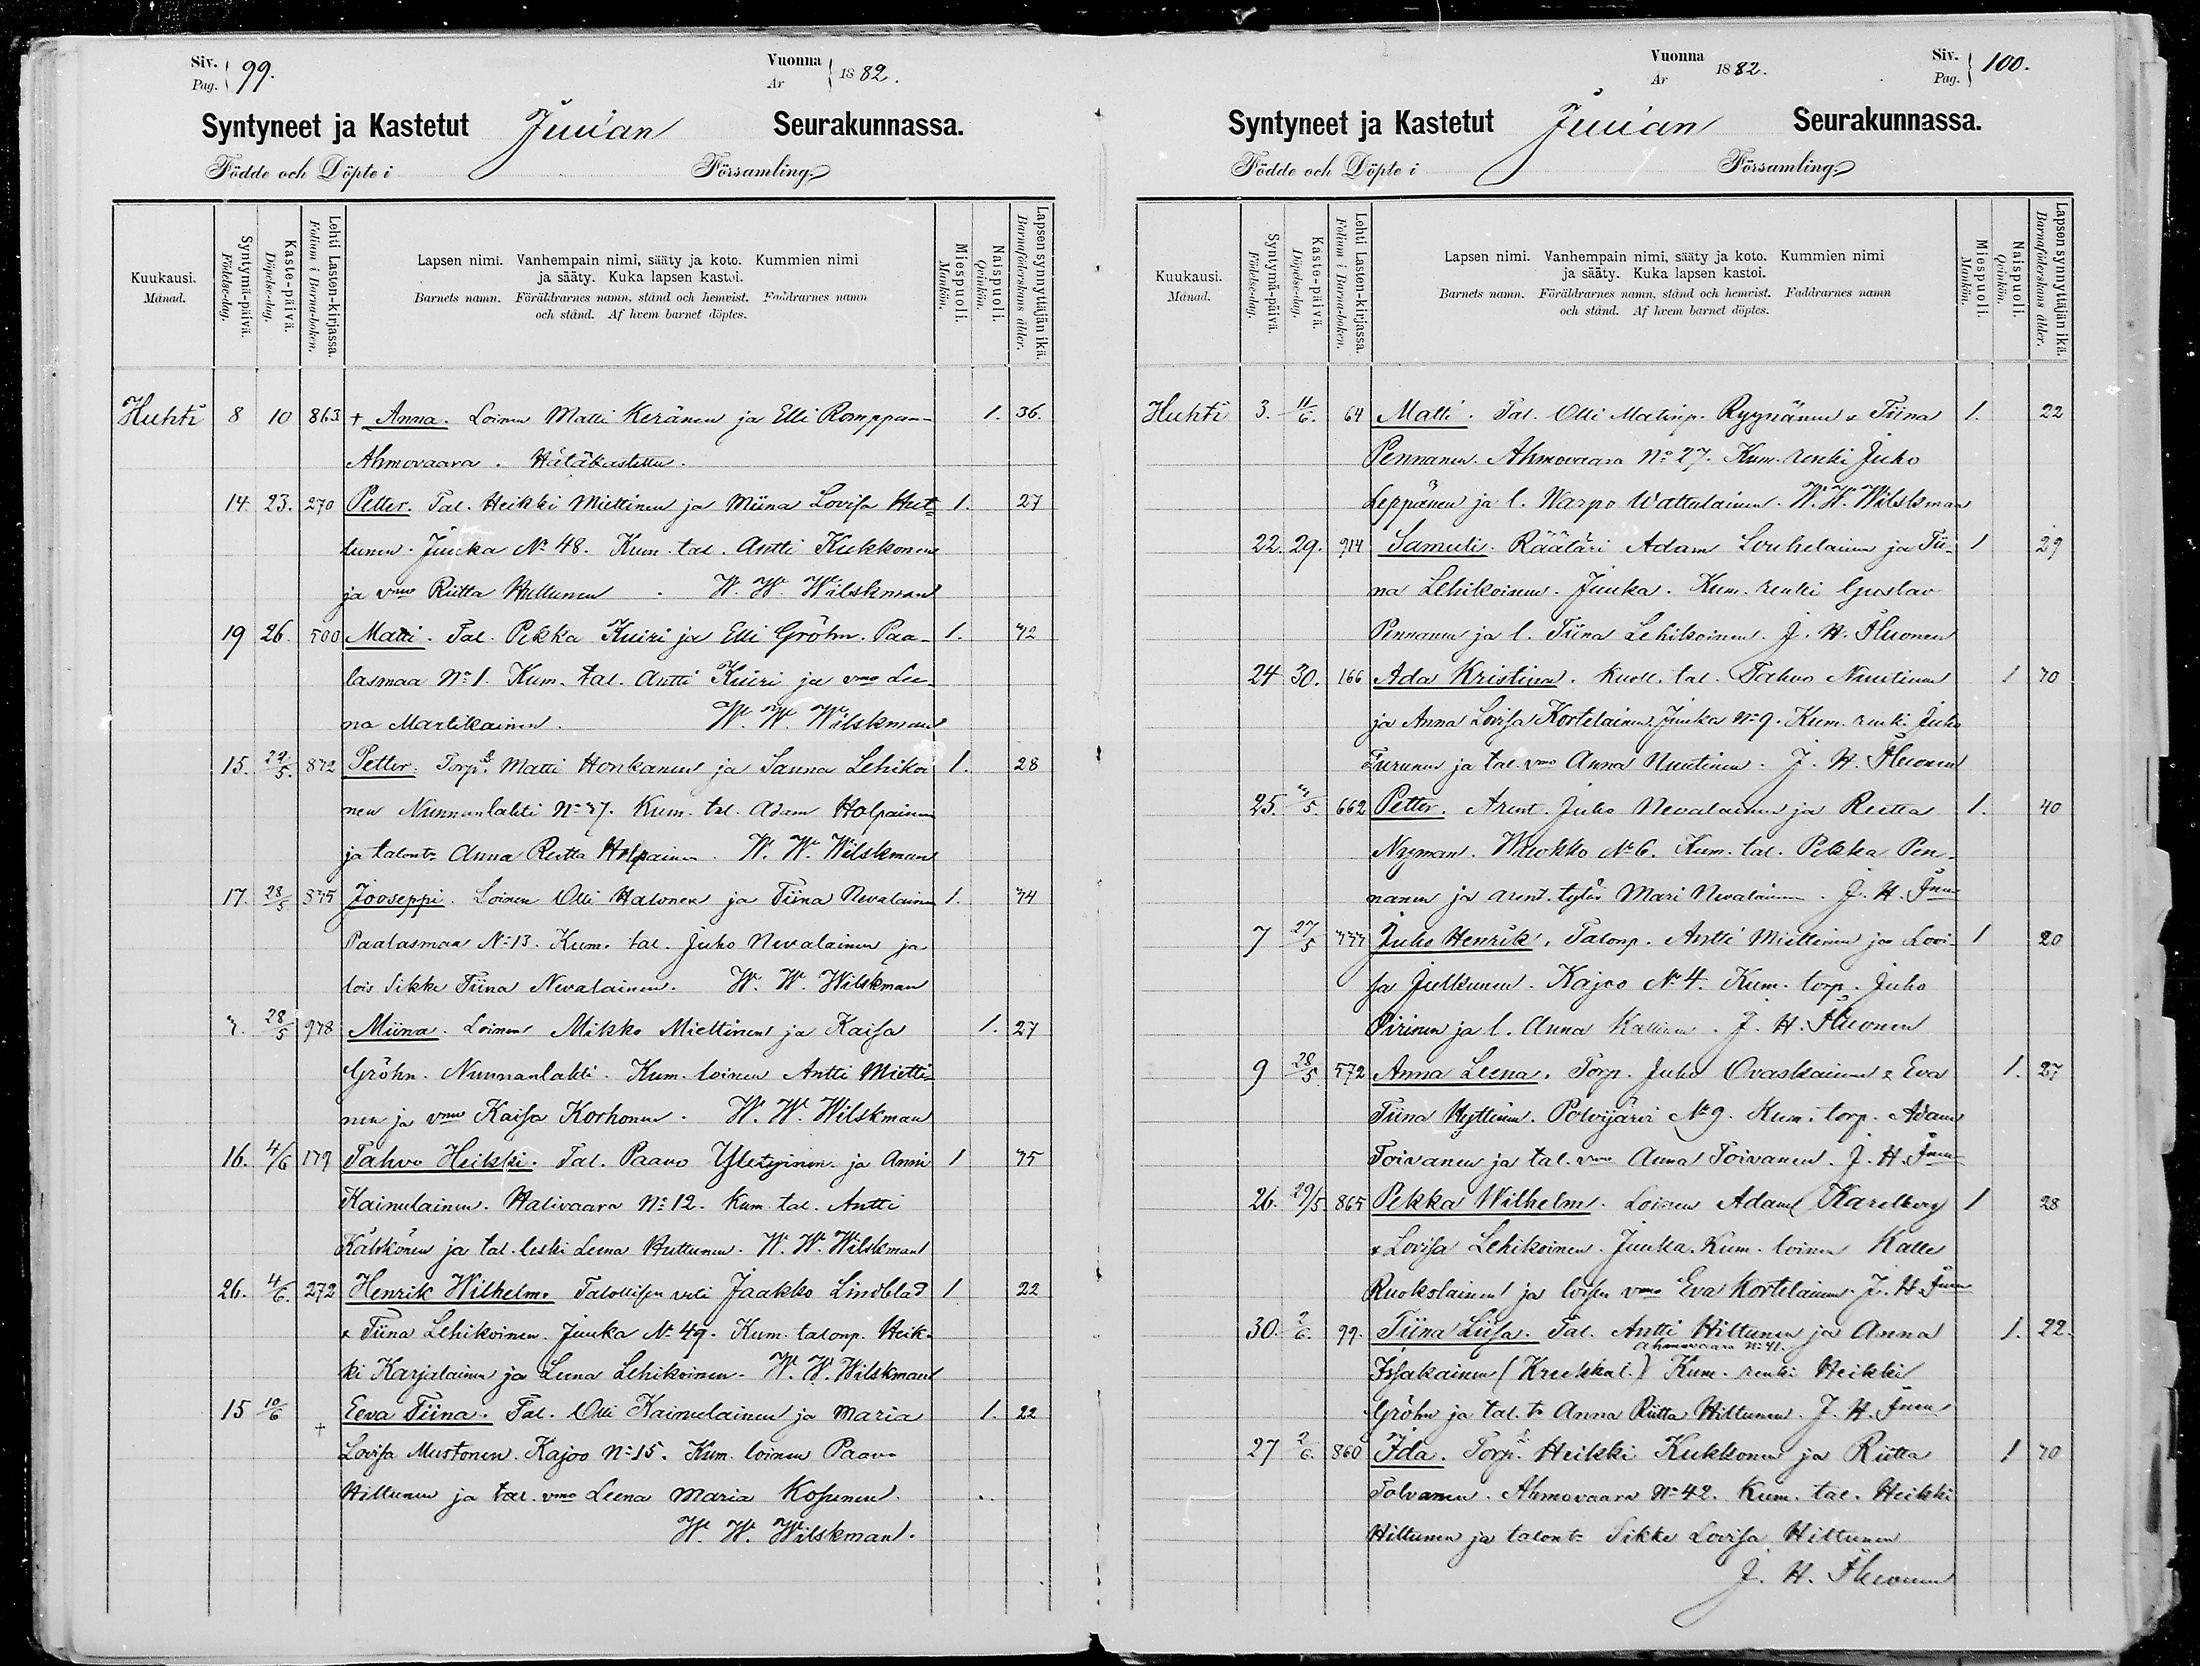 Siv. Pag. 99.
Vuonna År 1882.
Syntyneet ja Kastetut Juuan Seurakunnassa.
Födde och Döpte i Församling.
Kuukausi. Månad.
Syntymä-päivä. Födelse-dag.
Kaste-päivä. Döpelse-dag.
Lehti Lasten-kirjassa. Folium i Barna-boken.
Lapsen nimi. Vanhempain nimi, sääty ja koto. Kummien nimi
ja sääty. Kuka lapsen kastoi.
Barnets namn. Föräldrarnes namn, stånd och hemvist. Faddrarnes namn
och stånd. Af hvem barnet döptes.
Miespuoli. Mankön.
Naispuoli. Qvinkön.
Lapsen synnyttäjän ikä. Barnaföderskans ålder.
Huhti 8 10 863 + Anna. Loinen Matti Keränen ja Elli Romppan- 1. 36.
Ahmovaara. Hätäkastettu.
14. 23. 270 Petter. Tal. Heikki Miettinen ja Miina Lovisa Hut- 1. 27
tunen. Juuka No 48. Kum. tal. Antti Kukkonen
ja vmo Riitta Huttunen. W. W. Wilskman
19 26. 500 Matti. Tal. Pekka Kuiri ja Elli Gröhn. Paa- 1. 42
lasmaa No 1. Kum. tal. Antti Kuiri ja vmo Lee-
na Martikainen. W. W. Wilskman
15. 872 Petter. Torp. Matti Honkanen ja Sanna Lehikoi 1. 28
nen Nunnanlahti No 37. Kum. tal. Adam Holpainen
ja talont. Anna Riitta Holpainen. W. W. Wilskman
17. 28/5 875 Jooseppi. Loinen Olli Halonen ja Tiina Nevalainen 1. 44
Paalasmaa No 13. Kum. tal. Juho Nevalainen ja
lois Sikke Tiina Nevalainen. W. W. Wilskman
7. 28/5 978 Miina. Loinen Mikko Miettinen ja Kaisa 1. 27
Gröhn. Nunnanlahti. Kum. loinen Antti Mietti-
nen ja vmo Kaisa Korhonen. W. W. Wilskman
16. 4/6 179 Tahvo Heikki. Tal. Paavo Yletyinen ja Anni 1 45
Kainulainen. Halivaara No 12. Kum. tal. Antti
Kärkkönen ja tal. leski Leena Huttunen. W. W. Wilskman
26. 4/6. 272 Henrik Wilhelm. Talollisen veli Jaakko Lindblad 1 22
& Tiina Lehikoinen. Juuka No 49. Kum. talonp. Heik-
ki Karjalainen ja Leena Lehikoinen. W. W. Wilskman
15 10/6 + Eeva Tiina. Tal. Olli Kainulainen ja Maria 1. 22
Lovisa Mustonen. Kajoo No 15. Kum. loinen Paavo
Hiltunen ja tal. vmo Leena Maria Kosunen.
W. W. Wilskman.
Vuonna År 1882.
Siv. Pag. 100.
Syntyneet ja Kastetut Juuan Seurakunnassa.
Födde och Döpte i Församling.
Kuukausi. Månad.
Syntymä-päivä. Födelse-dag.
Kaste-päivä. Döpelse-dag.
Lehti Lasten-kirjassa. Folium i Barna-boken.
Lapsen nimi. Vanhempain nimi, sääty ja koto. Kummien nimi
ja sääty. Kuka lapsen kastoi.
Barnets namn. Föräldrarnes namn, stånd och hemvist. Faddrarnes namn
och stånd. Af hvem barnet döptes.
Miespuoli. Mankön.
Naispuoli. Qvinkön.
Lapsen synnyttäjän ikä. Barnaföderskans ålder.
Huhti 3. 11/6. 64 Matti. Tal. Olli Matinp. Ryynänen & Tiina 1. 22
Pennanen. Ahmovaara No 27. Kum. renki Juho
Leppänen ja l. Warpo Wattulainen. W. W. Wilskman
22. 29. 914 Samuli. Räätäri Adam Louhelainen ja Tii- 1 29
na Lehikoinen. Juuka. Kum. renki Gustav
Pennanen ja l. Tiina Lehikoinen. J. H. Iluonen
24 30. 166 Ada Kristina. Kuoll. tal. Tahvo Nuutinen 1 40
ja Anna Lovisa Kortelainen Juuka No 9. Kum. renki Juho
Turunen ja tal. vmo Anna Nuutinen. J. H. Iluonen
25. 662 Petter. Arent. Juho Nevalainen ja Riitta 1. 40
Nyman. Wuokko No 6. Kum. tal. Pekka Pen-
nanen ja arent. tytär Mari Nevalainen. J. H.
7 27/5 777 Juho Henrik. Talonp. Antti Miettinen ja Lovi- 1 20
sa Julkunen. Kajoo No 4. Kum. torp. Juho
Piirinen ja l. Anna Kallinen. J. H. Iluonen
9 28/5 572 Anna Leena. Torp. Juho Ovaskainen & Eva 1. 27
Tiina Hyttinen. Polvijärvi No 9. Kum. torp. Adam
Toivanen ja tal. vmo Anna Toivanen. J. H.
26. 29/5 865 Pekka Wilhelm. Loinen Adam Karelberg 1 28
& Lovisa Lehikoinen. Juuka. Kum. loinen Kalle
Ruokolainen ja loisen vmo Eva Kortelainen. J. H.
30. 2/6. 99. Tiina Liisa. Tal. Antti Hiltunen ja Anna 1. 22.
Ahmovaara No 41.
Issakainen (Kreikkal.) Kum. renki Heikki
Gröhn ja tal. tr Anna Riitta Hiltunen. J. H.
27 2/6. 860 Ida. Torp. Heikki Kukkonen ja Riitta 1 40
Tolvanen. Ahmovaara No 42. Kum. tal. Heikki
Hiltunen ja talont. Sikke Lovisa Hiltunen
J. H. Iluonen